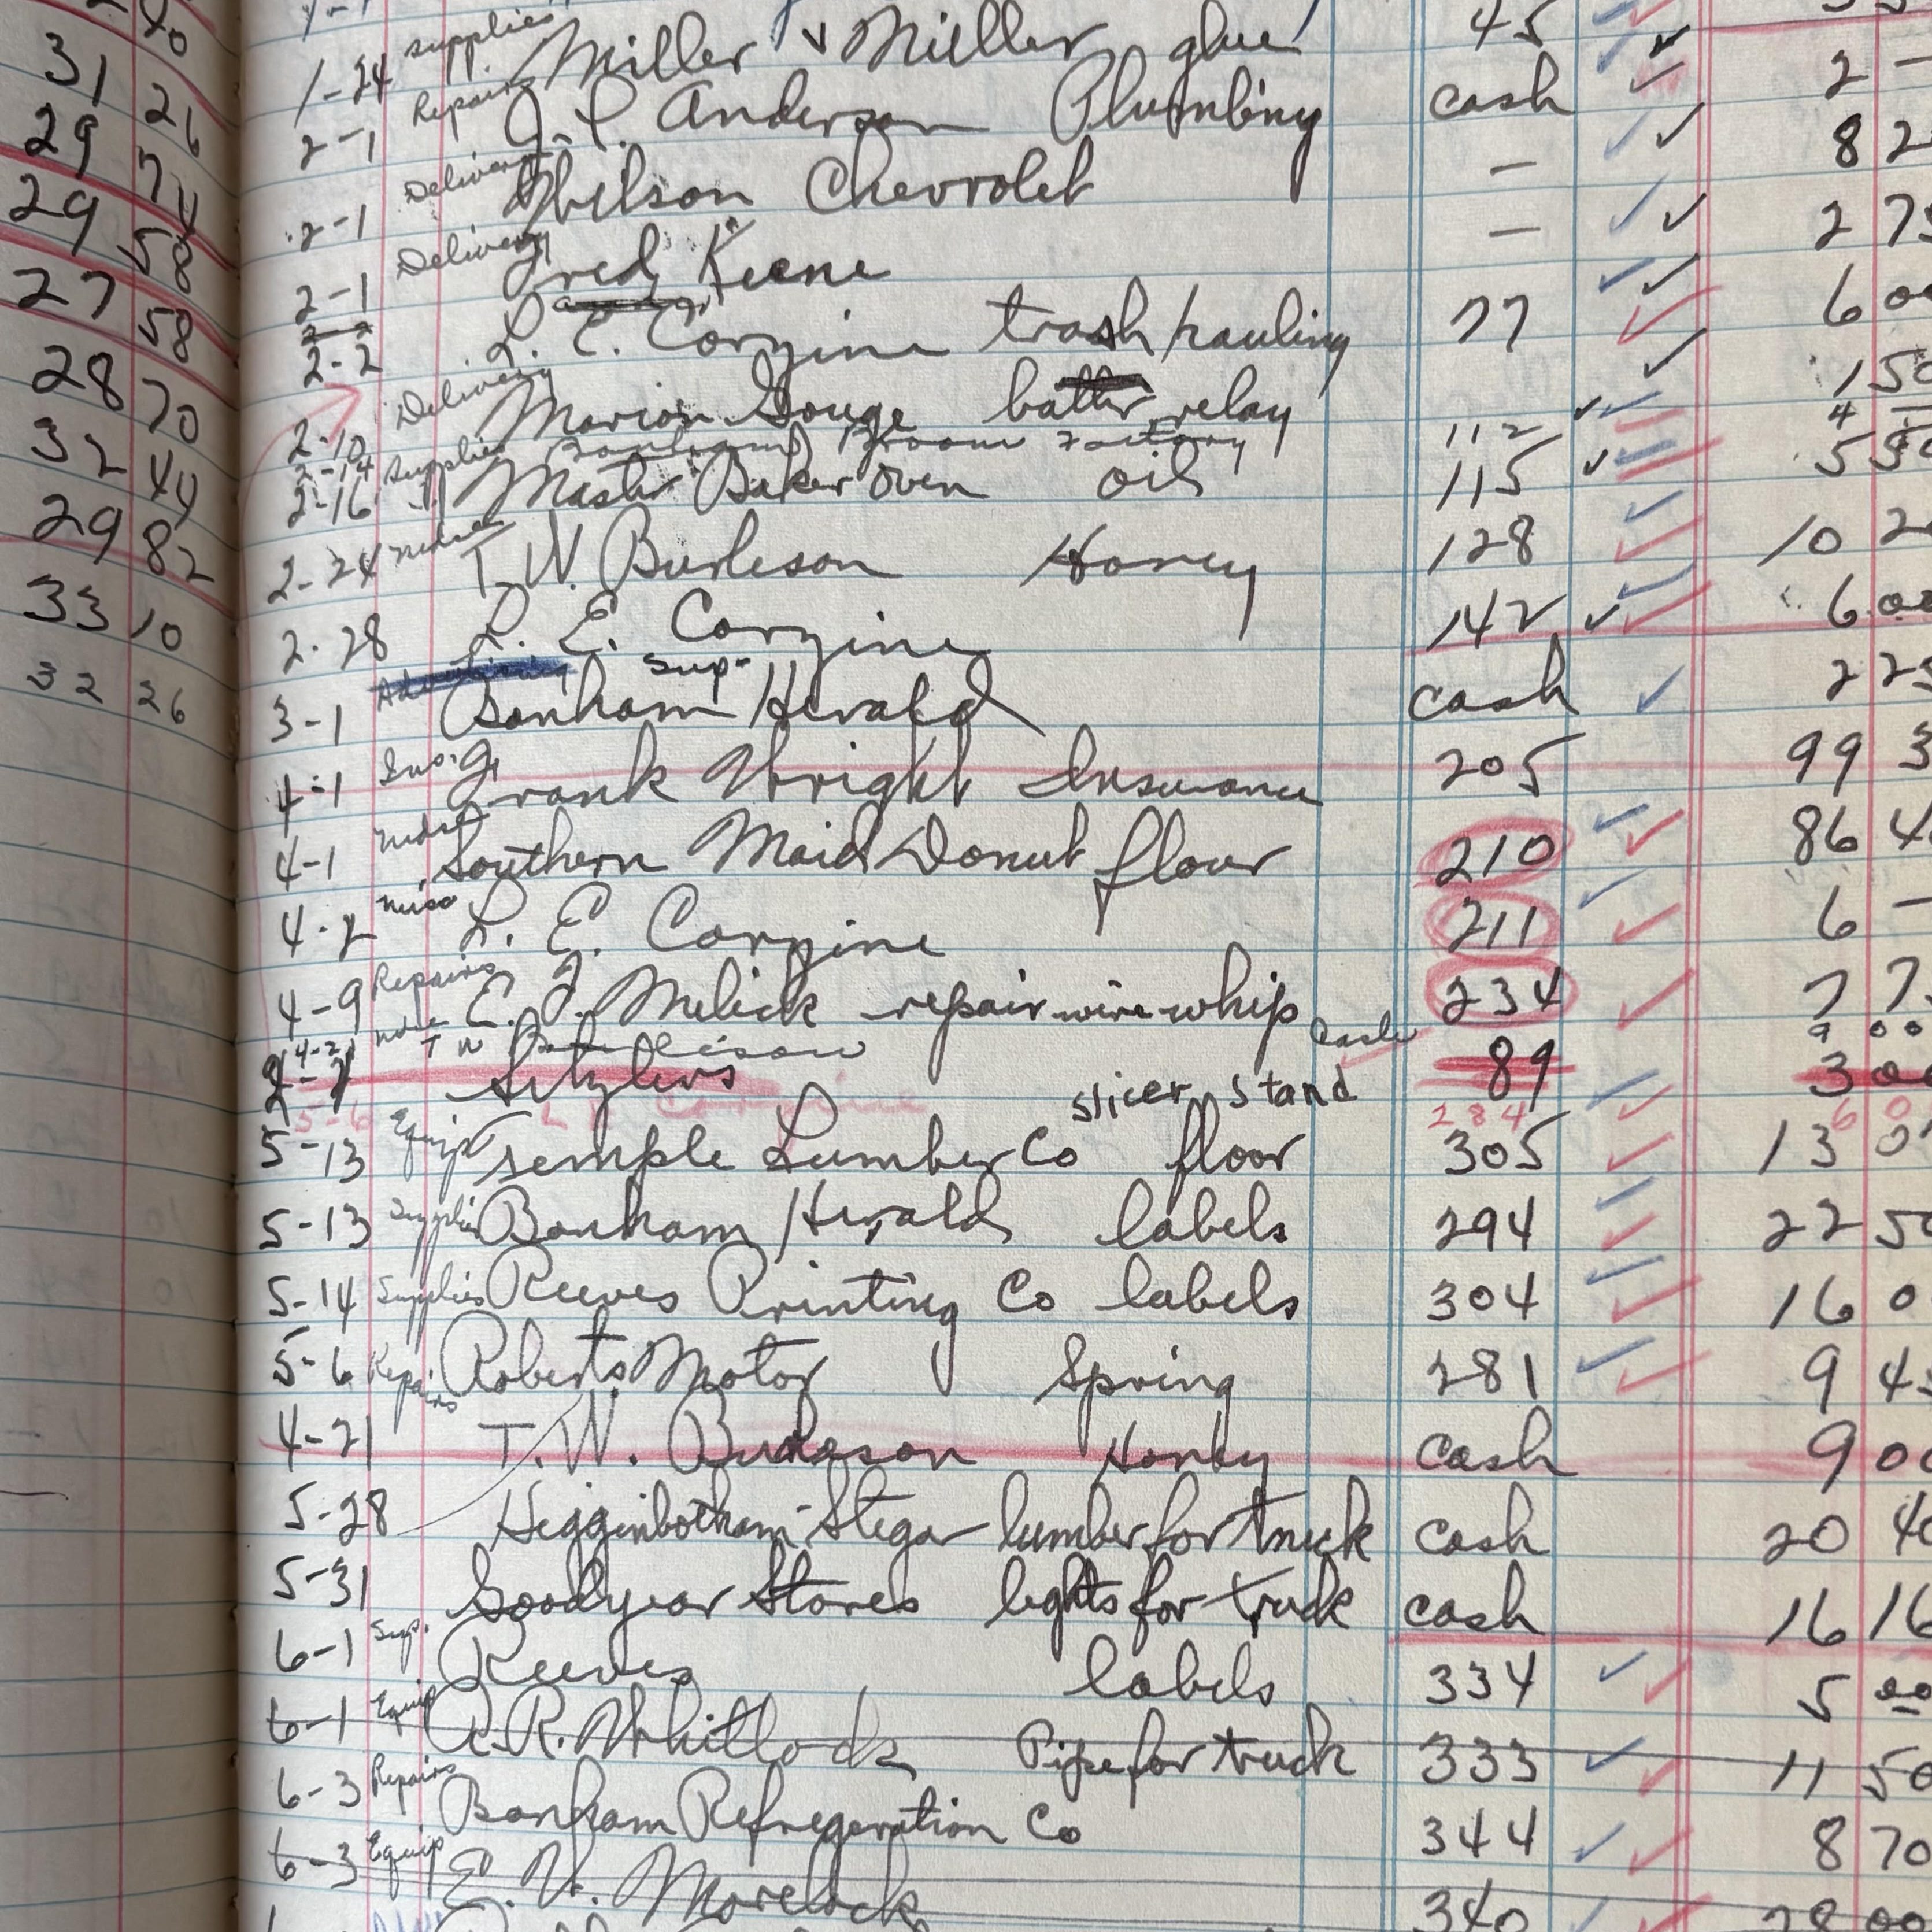 40
31 26
29 74
29 58
27 58
28 70
32 44
29 82
33 10
32 26
1-24 supplies Miller & Miller glue 45
2-1 Repairs J. P. Anderson Plumbing cash 2 –
2-1 Delivery Wilson Chevrolet – 82
2-1 Delivery Fred Keene – 2 75
2-2 L. E. Corzine trash hauling 77 6 00
2-10 Delivery Marion Gouge relay 1 50
2-14 Supplies Broom Factory 112 4 –
2-16 Master Baker Oven oil 115 5 50
2-24 mdse T. W. Burleson Honey 128 10 2
2-28 L. E. Corzine 142 6 00
3-1 Sup. Bonham Herald cash 2 25
4-1 Ins. Frank Wright Insurance 205 99 3
4-1 mdse Southern Maid Donut flour 210 86 4
4-2 misc L. E. Corzine 211 6 –
4-9 Repairs E. J. Melick repair wire whip 234 7 7
4-21 mdse T W Burleson cash 9 00
Sitzlers 89 3 00
5-6 L E Corzine 284 6 0
slicer stand
5-13 Equip Temple Lumber Co floor 305 13 0
5-13 Supplies Bonham Herald labels 294 22 50
5-14 Supplies Reeves Printing Co labels 304 16 0
5-6 Repairs Roberts Motor Spring 281 9 4
4-21 T. W. Burleson Honey cash 9 00
5-28 Higginbotham-Stegar lumber for truck cash 20 40
5-31 Goodyear Stores lights for truck cash 16 16
6-1 Sup. Reeves labels 334 5 00
6-1 Equip R. R. Whitlock Pipe for truck 333 11 50
6-3 Repairs Bonham Refregeration Co 344 8 70
6-3 Equip E. H. Morelock 340 28 00